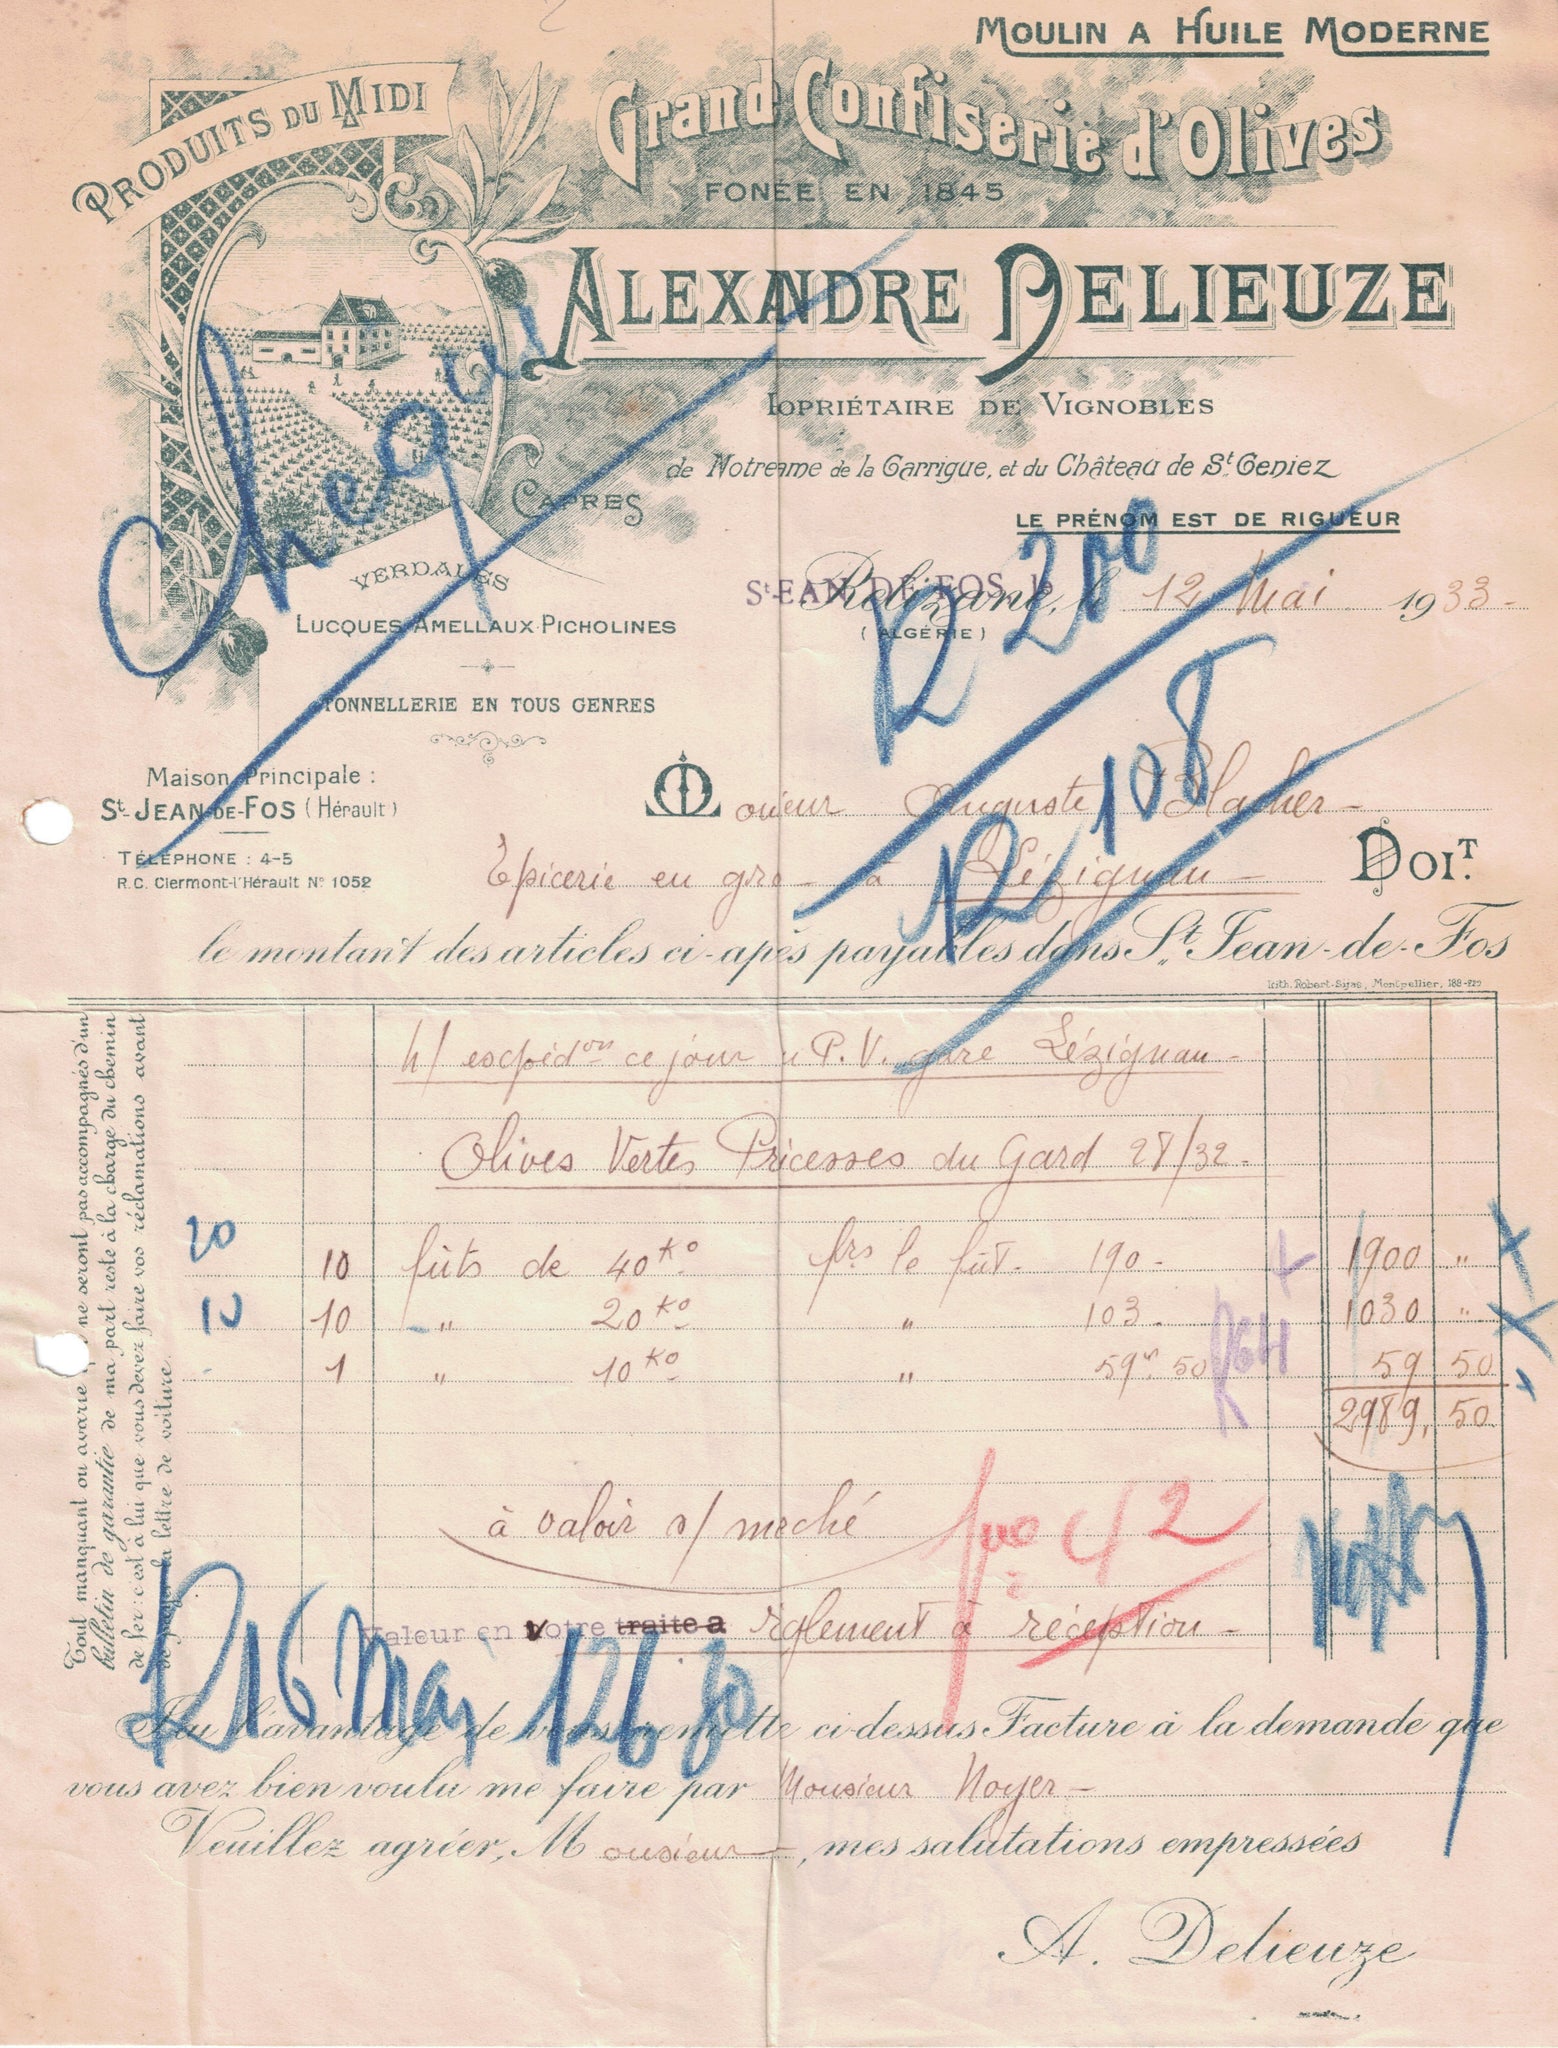 MOULIN A HUILE MODERNE
PRODUITS DU MIDI
Grand Confiserie d'Olives
FONÉE EN 1845
ALEXANDRE DELIEUZE
IOPRIÉTAIRE DE VIGNOBLES
de Notreame de la Garrigue, et du Château de St Geniez
CAPRES
LE PRÉNOM EST DE RIGUEUR
VERDALES
LUCQUES AMELLAUX PICHOLINES
TONNELLERIE EN TOUS GENRES
Chèque
St-JEAN-DE-FOS, le
Relizane, le 12 Mai 1933-
(ALGÉRIE)
R 200
R 108
Maison Principale :
St-JEAN-DE-FOS (Hérault)
TÉLÉPHONE : 4-5
R.C. Clermont-l'Hérault No 1052
M onsieur Auguste
Épicerie en gros à Lézignan - DOIT.
le montant des articles ci-apès payables dans St Jean-de-Fos
Lith. Robert-Sijas, Montpellier,
Tout manquant ou avarie ne seront pas accompagnés d'un
bulletin de garantie de ma part reste à la charge du chemin
de fer: c'est à lui que vous devez faire vos réclamations avant
la lettre de voiture
expédon ce jour P.V. gare Lézignan -
Olives Vertes Pricesses du Gard 28/32 -
20 10 fûts de 40 Ko frs le fût. 190 - 1900 "
10 10 - " 20 Ko " 103. 1030 "
- 1 " 10 Ko " 59 50 59 50
2989, 50
à valoir s/ meché
42
Valeur en votre traite a règlement à réception -
R 16 Mai 126 80
J'ai l'avantage de vous remettre ci-dessus Facture à la demande que
vous avez bien voulu me faire par Monsieur Noyer -
Veuillez agréer, M onsieur, mes salutations empressées
A. Delieuze